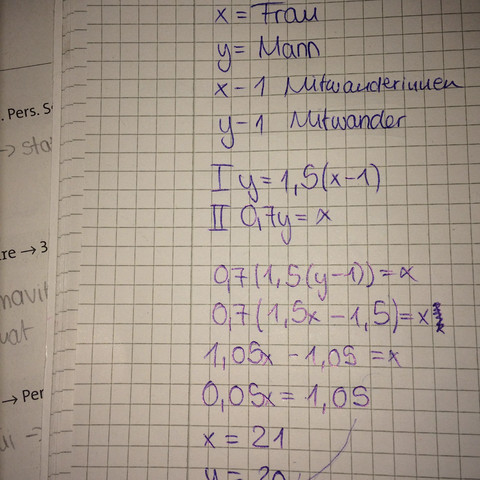 x = Frau
y = Mann
x - 1 Mitwanderinnen
y - 1 Mitwander
I y = 1,5(x-1)
II 0,7y = x
0,7(1,5(y-1)) = x
0,7(1,5x - 1,5) = x
1,05x - 1,05 = x
0,05x = 1,05
x = 21
y = 30
. Pers. S
→ sta
re → 3
→ Per